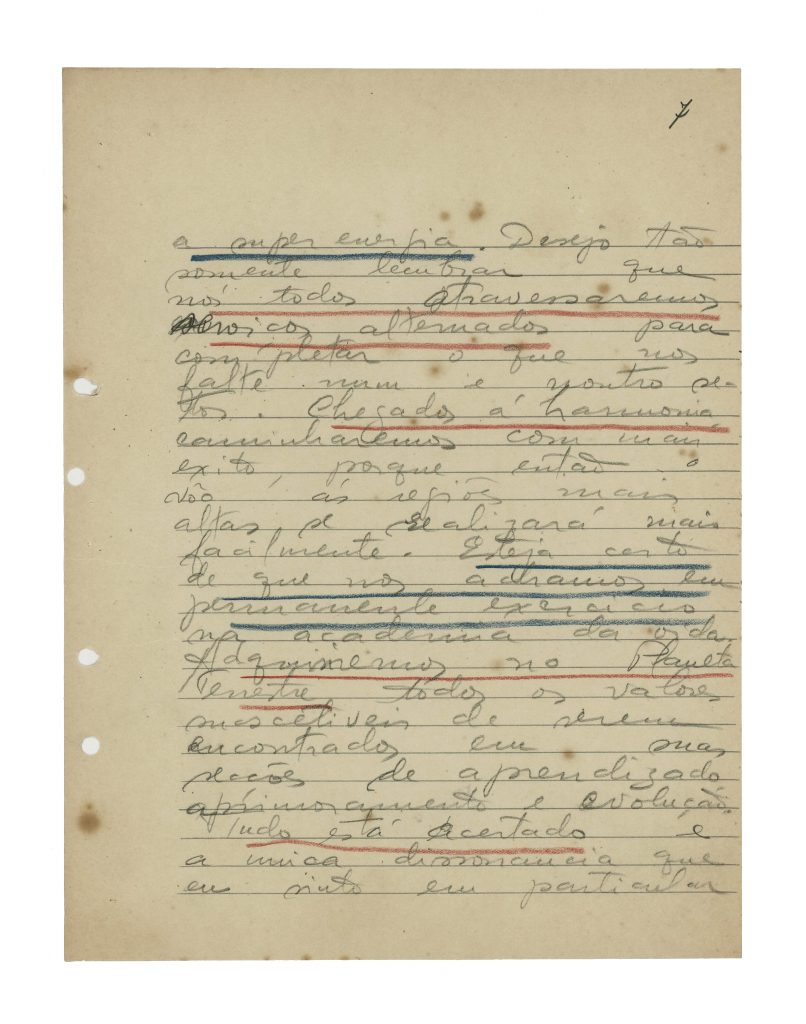 7
a super energia. Desejo tão
somente lembrar que
nós todos atravessaremos
alternados para
completar o que nos
falte num e noutro se-
tor. Chegados á harmonia,
caminharemos com mais
exito, porque então o
vôo ás regiões mais
altas se realizará mais
facilmente. Esteja certo
de que nos achamos em
permanente exercicio
na academia da vida.
Adquiriremos no Planeta
Terrestre todos os valores
suscetiveis de serem
encontrados em suas
secções de aprendizado
aprimoramento e evolução.
Tudo está acertado e
a unica dissonancia que
eu sinto em particular